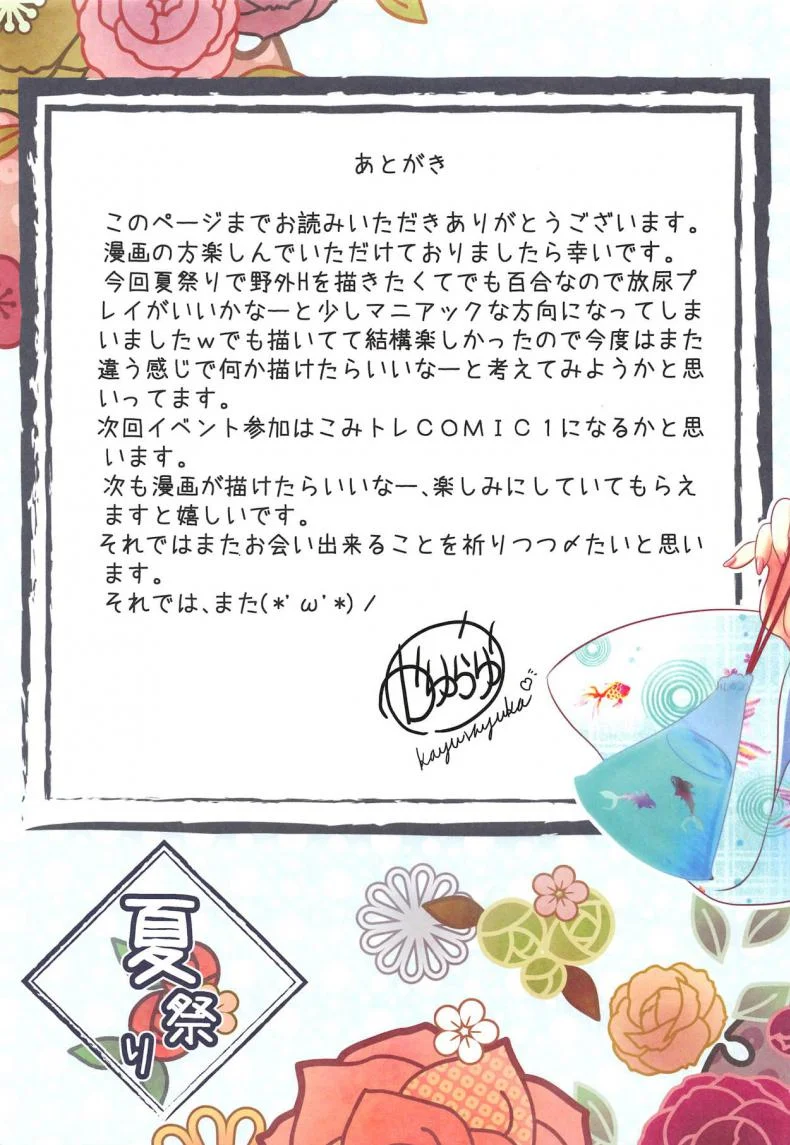 あとがき
このページまでお読みいただきありがとうございます。
漫画の方楽しんでいただけておりましたら幸いです。
今回夏祭りで野外Hを描きたくてでも百合なので放尿プ
レイがいいかなーと少しマニアックな方向になってしま
いましたｗでも描いてて結構楽しかったので今度はまた
違う感じで何か描けたらいいなーと考えてみようかと思
いってます。
次回イベント参加はこみトレＣＯＭＩＣ１になるかと思
います。
次も漫画が描けたらいいなー、楽しみにしていてもらえ
ますと嬉しいです。
それではまたお会い出来ることを祈りつつ〆たいと思い
ます。
それでは、また(*'ω'*)ﾉ
kayurayuka
夏祭り